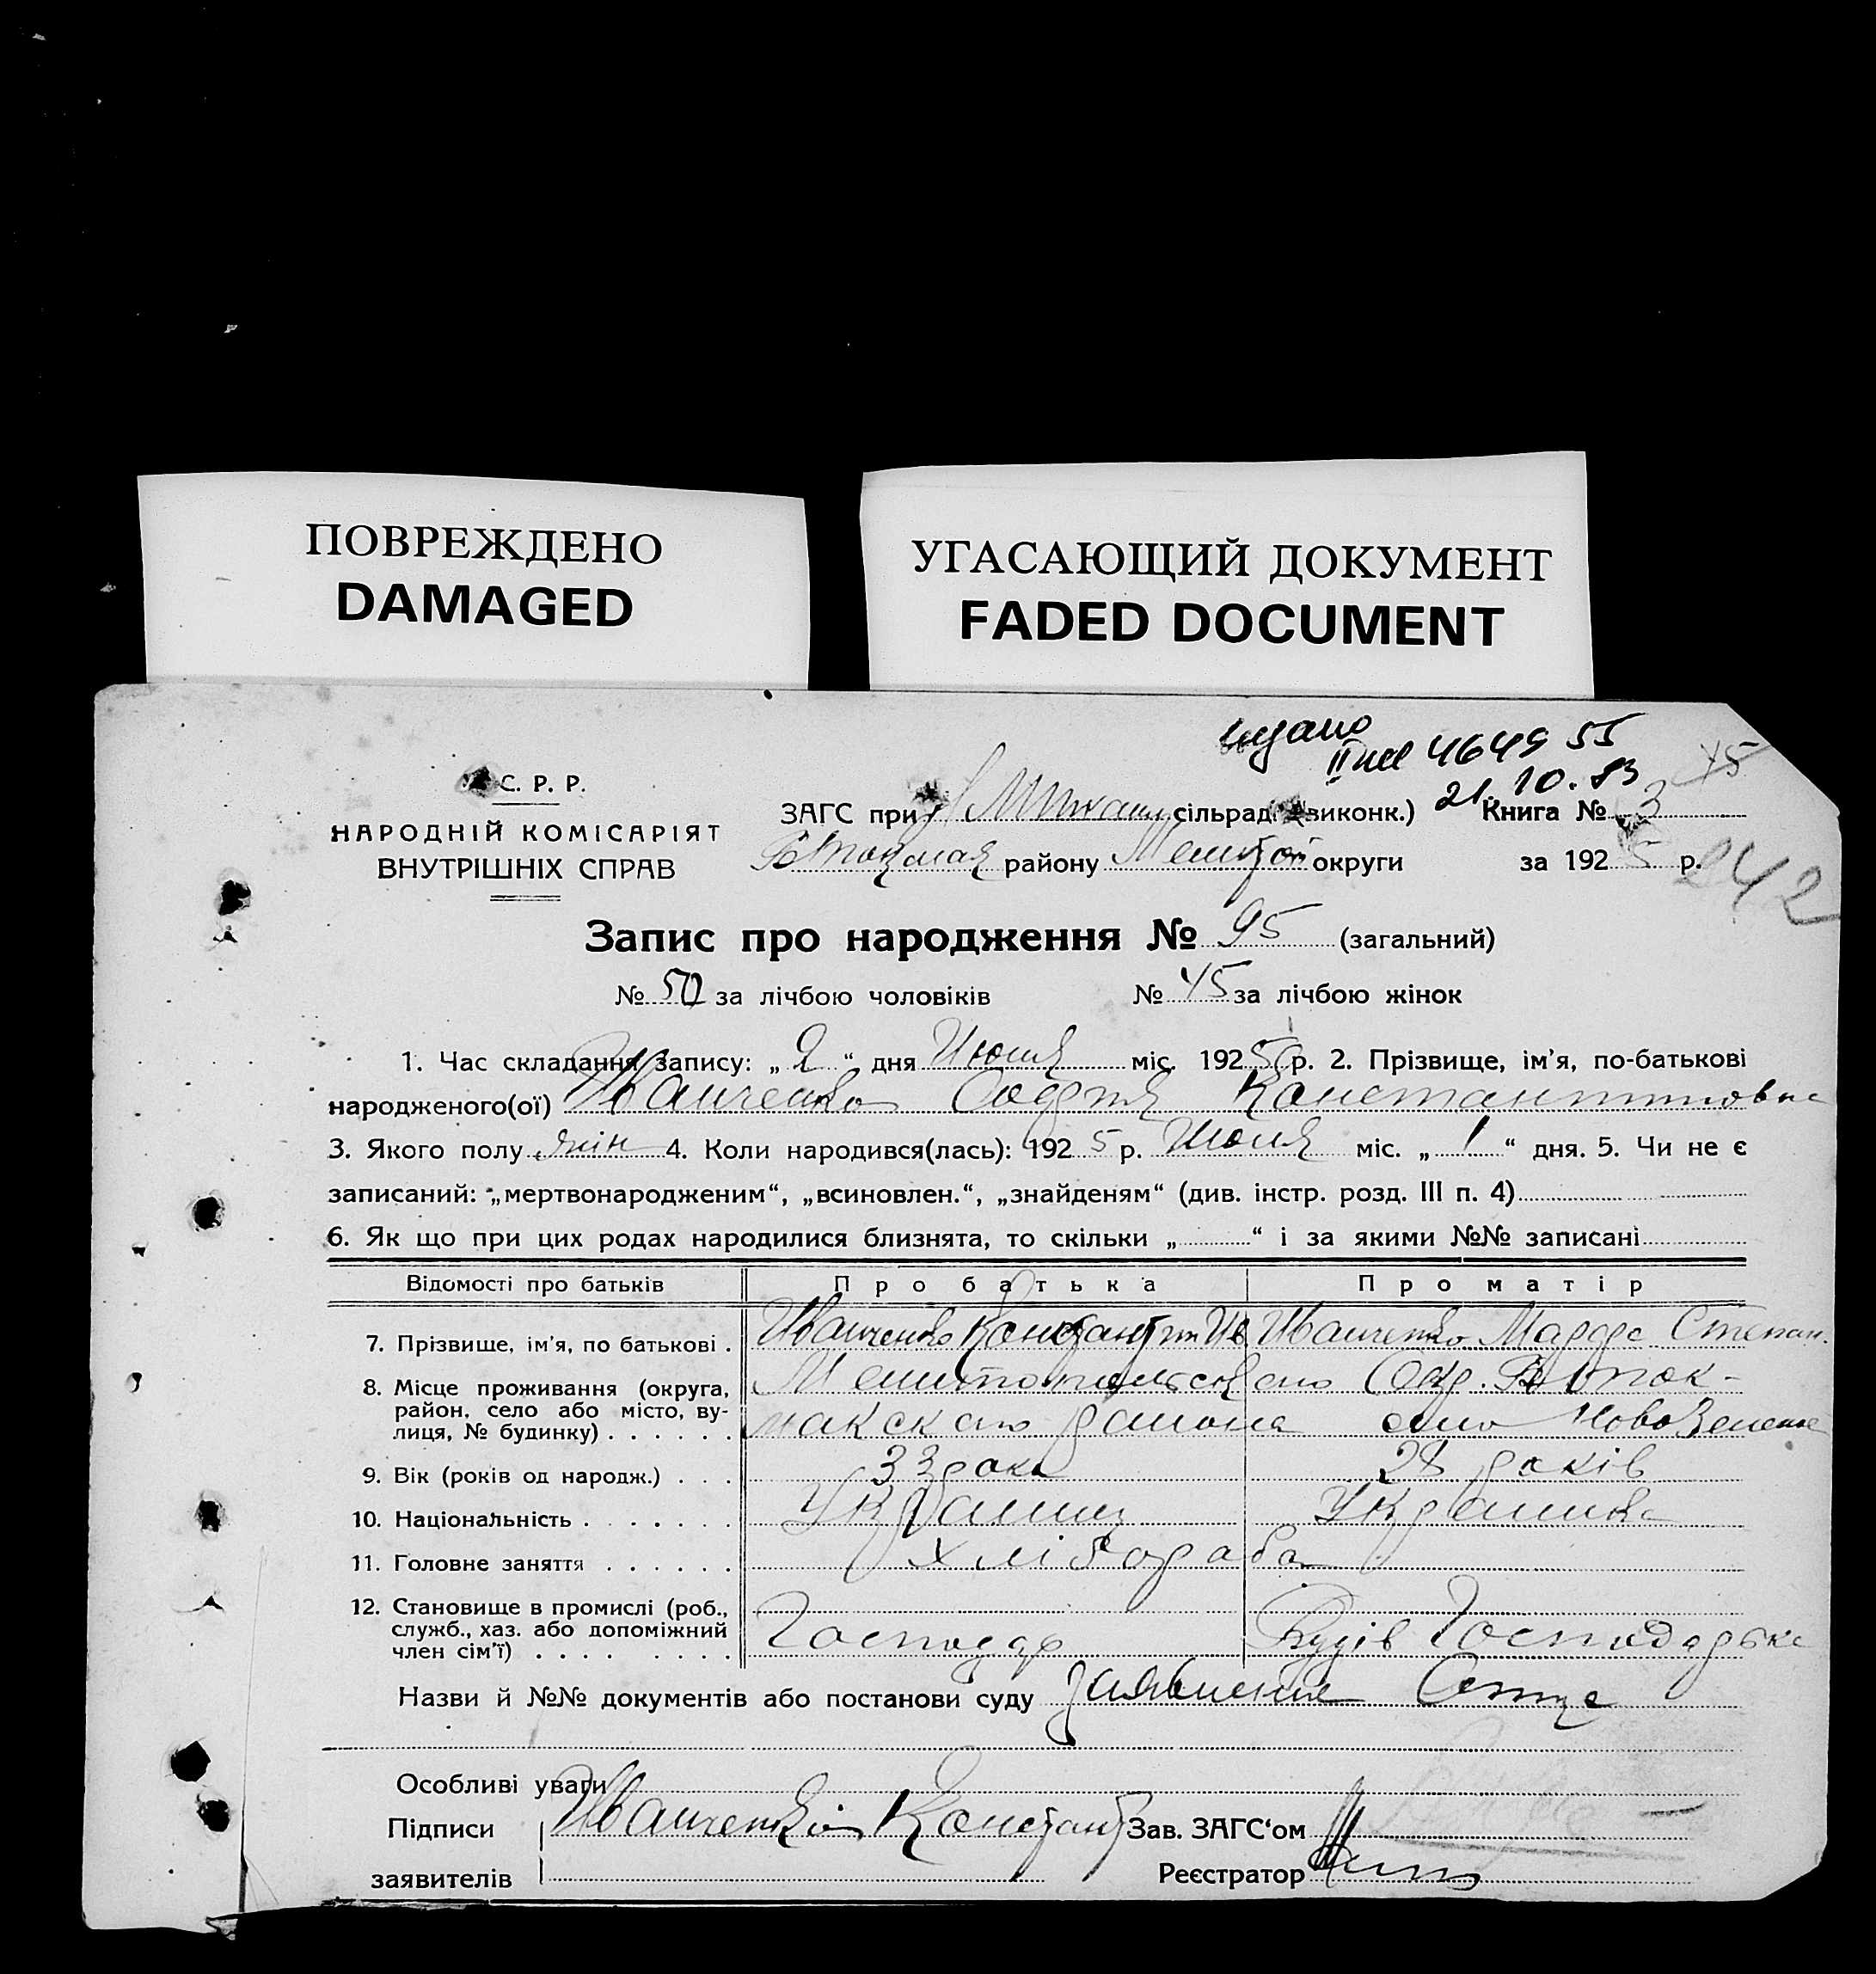 ПОВРЕЖДЕНО
DAMAGED
УГАСАЮЩИЙ ДОКУМЕНТ
FADED DOCUMENT
4649 55
21.10.83
45
С. Р. Р.
НАРОДНІЙ КОМІСАРІЯТ
ВНУТРІШНІХ СПРАВ
ЗАГС при сільрад( виконк.) Книга № 3
району округи за 1925 р.
242
Запис про народження № 95 (загальний)
№ 50 за лічбою чоловіків № 45 за лічбою жінок
1. Час складання запису: „ 2 “ дня Июня міс. 1925 р. 2. Прізвище, ім’я, по-батькові
народженого(ої) Иванченко Константиновна
3. Якого полу жін 4. Коли народився(лась): 1925 р. Июня міс. „ 1 “ дня. 5. Чи не є
записаний: „мертвонародженим“, „всиновлен.“, „знайденям“ (див. інстр. розд. III п. 4)
6. Як що при цих родах народилися близнята, то скільки „ “ і за якими №№ записані
Відомості про батьків Про батька Про матір
7. Прізвище, ім’я, по батькові . Иванченко Константин Ив Иванченко Марфа Степан.
8. Місце проживання (округа, Мелитопольского Окр. В Ток-
район, село або місто, ву- макского район село Ново
лиця, № будинку) . . . . . .
9. Вік (років од народж.) . . . 33 роки 28 років
10. Національність . . . . . . . Українец Українка
11. Головне заняття . . . . . . хлібороба
12. Становище в промислі (роб.,
служб., хаз. або допоміжний Господар Господарька
член сім’ї) . . . . . . . .
Назви й №№ документів або постанови суду заявление Отца
Особливі уваги
Підписи Иванченко Констант Зав. ЗАГС‘ом
заявителів Реєстратор